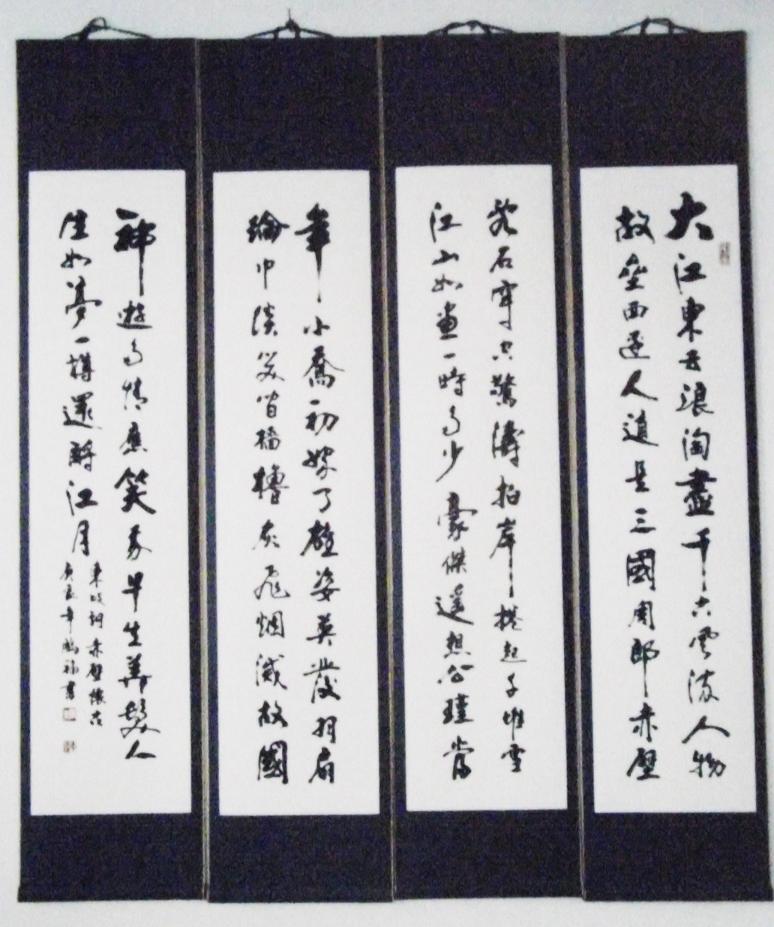 大江東去浪淘盡千古風流人物
故壘西邊人道是三國周郎赤壁
亂石穿空驚濤拍岸捲起千堆雪
江山如畫一時多少豪傑遙想公瑾當
年小喬初嫁了雄姿英發羽扇
綸巾談笑間檣櫓灰飛烟滅故國
神遊多情應笑我早生華髮人
生如夢一樽還酹江月
東坡詞赤壁懷古
庚辰年書